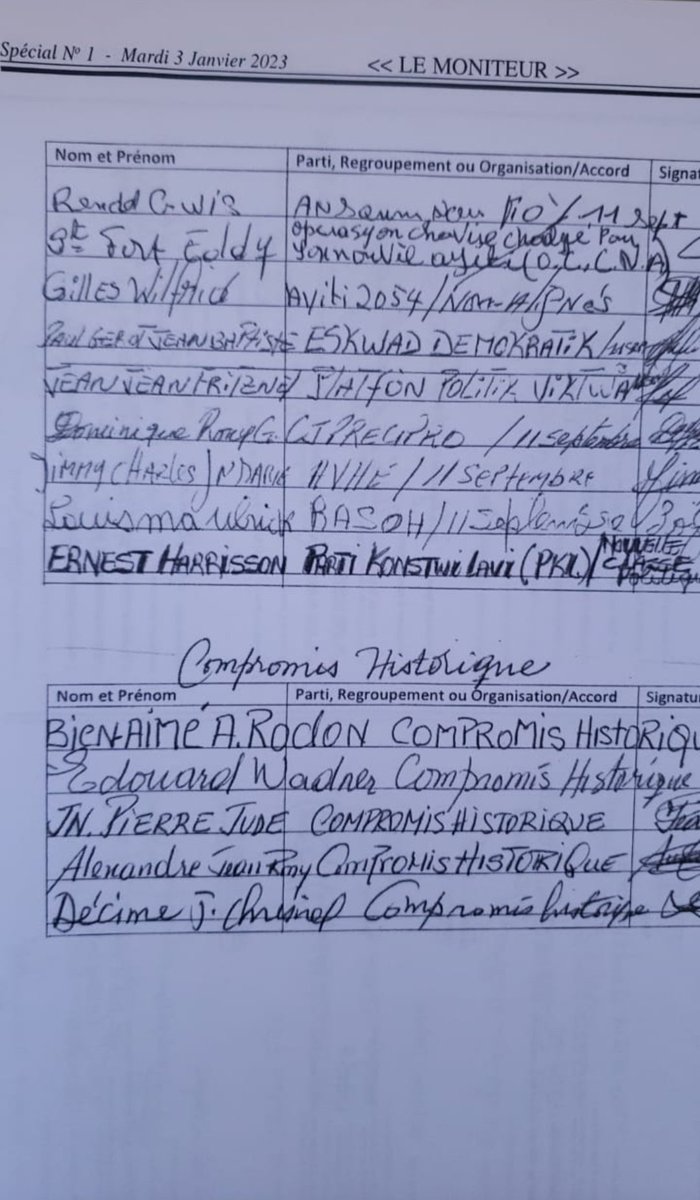 Spécial Nº 1 - Mardi 3 Janvier 2023 << LE MONITEUR >>
Nom et Prénom Parti, Regroupement ou Organisation/Accord Signat
11 sept
Fort Eddy operasyon chavire chodye Pou
(O.C.C.N.A)
Gilles Wilfrid Ayiti 2054 / Non-Alignés
PAUL GEROT JEAN BAPTISTE ESKWAD DEMOKRATIK
JEAN JEAN FRITZNEL PLATFON POLITIK VIKTWA
Dominique Rony G. / 11 septembre
JIMMY CHARLES JN DARIUS / 11 SEPTEMBRE
Louisma Ulrick BASOH / 11 Septembre
ERNEST HARRISSON PARTI KONSTWI LAVI (PKL) / NOUVELLE
CLASSE
Politique
Compromis Historique
Nom et Prénom Parti, Regroupement ou Organisation/Accord Signatu
BIEN-AIMÉ A. RODON COMPROMIS HISTORIQU
Edouard Wadner Compromis Historique
JN. PIERRE JUDE COMPROMIS HISTORIQUE
Alexandre Jean Rony COMPROMIS HISTORIQUE
Décime J. Chresnel Compromis historique